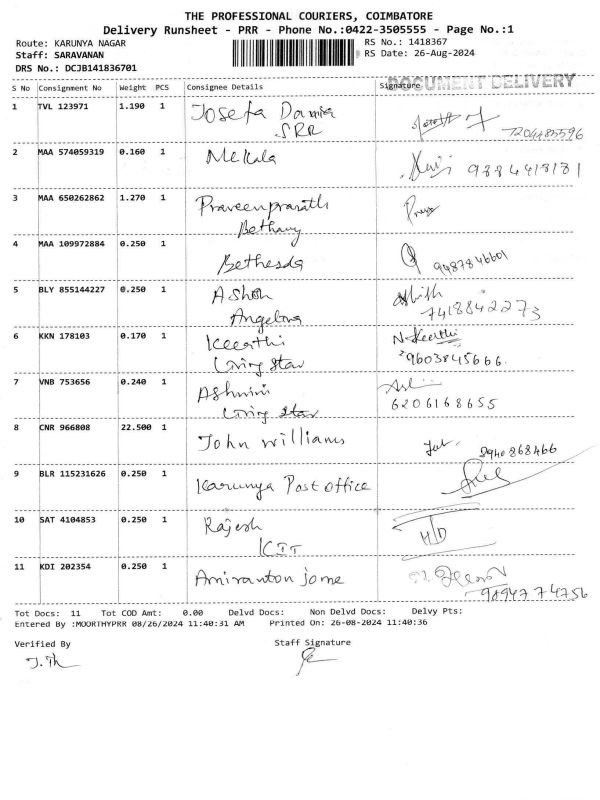 THE PROFESSIONAL COURIERS, COIMBATORE
Delivery Runsheet - PRR - Phone No.:0422-3505555 - Page No.:1
Route: KARUNYA NAGAR RS No.: 1418367
Staff: SARAVANAN RS Date: 26-Aug-2024
DRS No.: DCJB141836701
DOCUMENT DELIVERY
S No Consignment No Weight PCS Consignee Details Signature
1 TVL 123971 1.190 1 Josefa
SRR
2 MAA 574059319 0.160 1 Mekala 9884418181
3 MAA 650262862 1.270 1 Praveenprasath
Bethany
4 MAA 109972884 0.250 1 Bethesda 9487846601
5 BLY 855144227 0.250 1 Ashish
Angelina 7418842273
6 KKN 178103 0.170 1 Keerthi N. Keerthi
Living Star 9603845666.
7 VNB 753656 0.240 1 Ashwini
Living Star 6206168655
8 CNR 966808 22.500 1 John williams 9940868466
9 BLR 115231626 0.250 1 Karunya Post office
10 SAT 4104853 0.250 1 Rajesh HTD
KIT
11 KDI 202354 0.250 1
Tot Docs: 11 Tot COD Amt: 0.00 Delvd Docs: Non Delvd Docs: Delvy Pts:
Entered By :MOORTHYPRR 08/26/2024 11:40:31 AM Printed On: 26-08-2024 11:40:36
Verified By Staff Signature